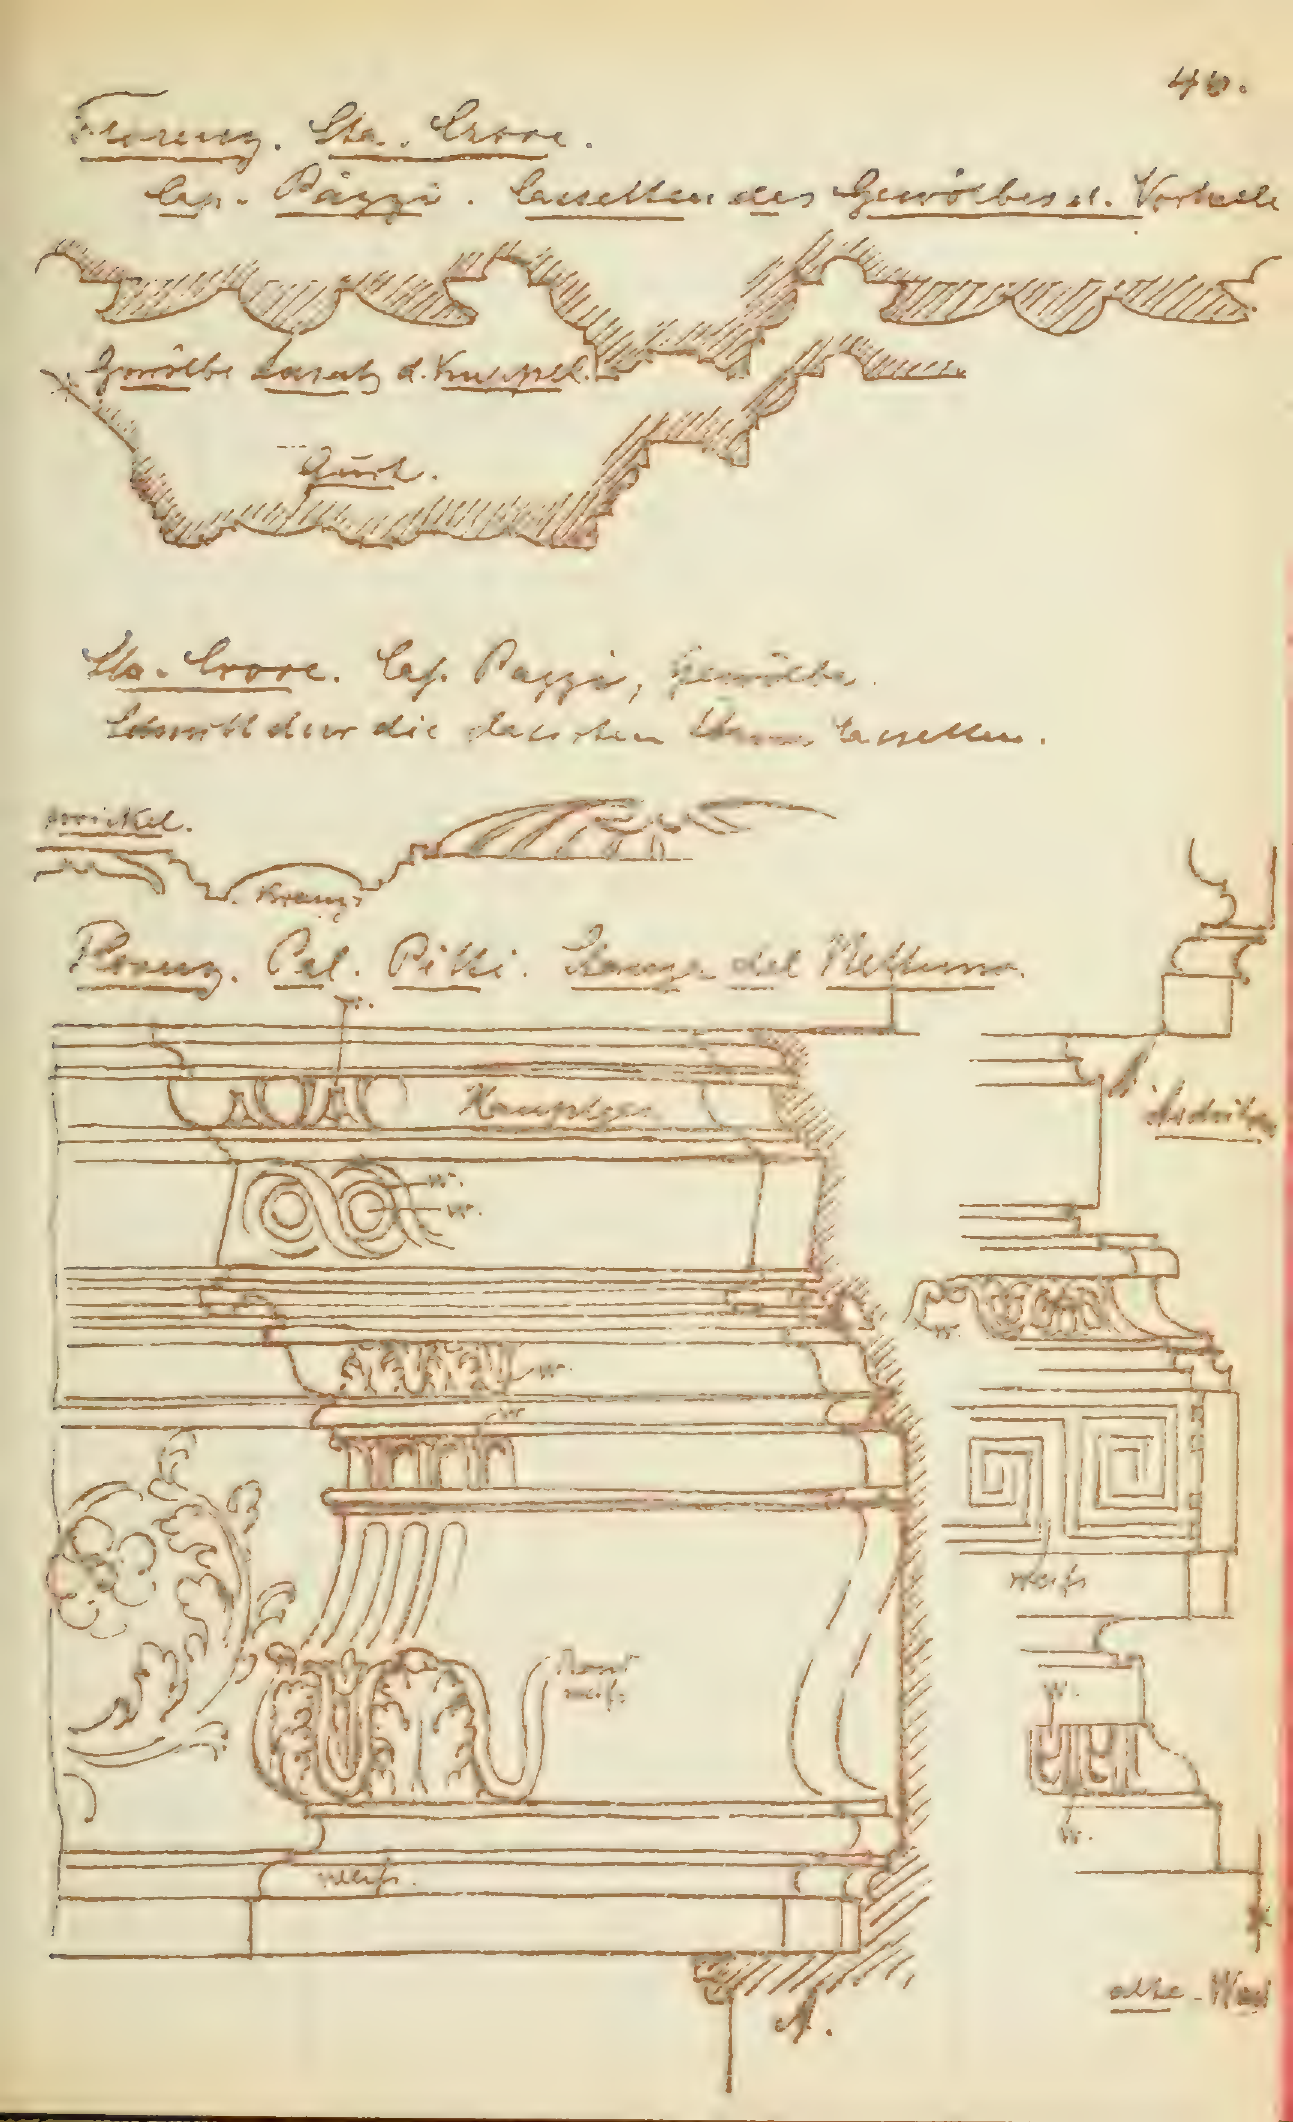 46.
Florenz. Sta. Croce.
Cap. Pazzi. Cassetten des Gewölbes d. Vorhalle
Gewölbe Ansatz d. Kuppel.
Gurt.
Sta. Croce. Cap. Pazzi, Gewölbe.
Schnitt dur die Cassetten.
Zwickel.
Kranz
Florenz. Pal. Pitti. Stanza del Nettuno.
w.
Hauptges
w.
w.
w.
w.
w.
weiß
weiß
w.
w.
weiß.
alte
A.